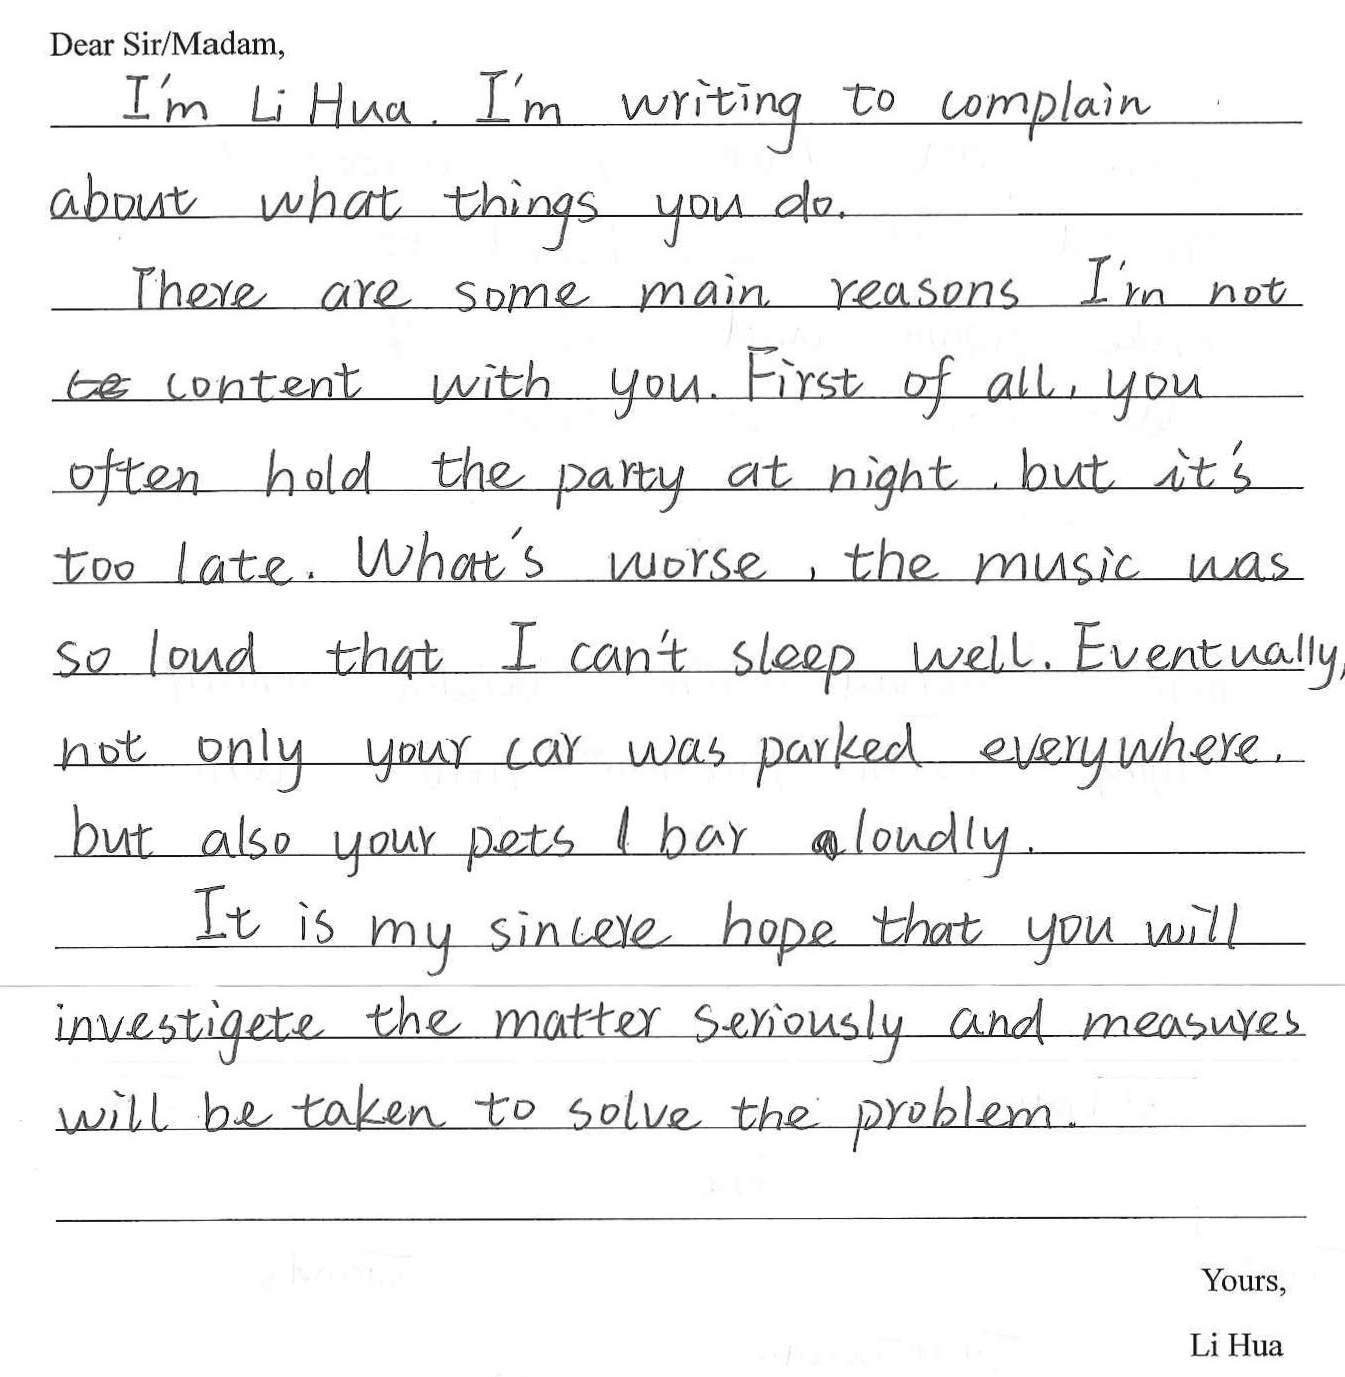 Dear Sir/Madam,
I'm Li Hua. I'm writing to complain
about what things you do.
There are some main reasons I'm not
content with you. First of all, you
often hold the party at night, but it's
too late. What's worse, the music was
so loud that I can't sleep well. Eventually,
not only your car was parked everywhere,
but also your pets bar loudly.
It is my sincere hope that you will
investigete the matter seriously and measures
will be taken to solve the problem.
Yours,
Li Hua